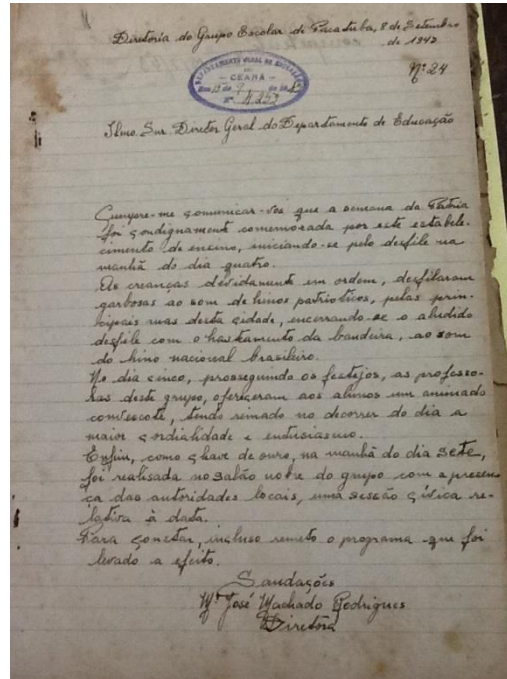 Diretoria do Grupo Escolar de Pacatuba, 8 de Setembro
de 1943
Nº 24
DEPARTAMENTO GERAL DE EDUCAÇÃO
— CEARÁ —
Nº 4.253
Ilmo. Snr. Diretor Geral do Departamento de Educação
Cumpre-me comunicar-vos que a semana da Pátria
foi condignamente comemorada por este estabele-
cimento de ensino, iniciando-se pelo desfile na
manhã do dia quatro.
As crianças devidamente em ordem, desfilaram
garbosas ao som de hinos patrioticos, pelas prin-
cipais ruas desta cidade, encerrando-se o aludido
desfile com o hasteamento da bandeira, ao som
do hino nacional brasileiro.
No dia cinco, prosseguindo os festejos, as professo-
ras deste grupo, ofereceram aos alunos um animado
convescote, tendo reinado no decorrer do dia a
maior cordialidade e entusiasmo.
Enfim, como chave de ouro, na manhã do dia sete,
foi realisada no salão nobre do grupo com a presen-
ça das autoridades locais, uma sessão cívica re-
lativa à data.
Para constar, incluso remeto o programa que foi
levado a efeito.
Saudações
Mª José Machado Rodrigues
Diretora